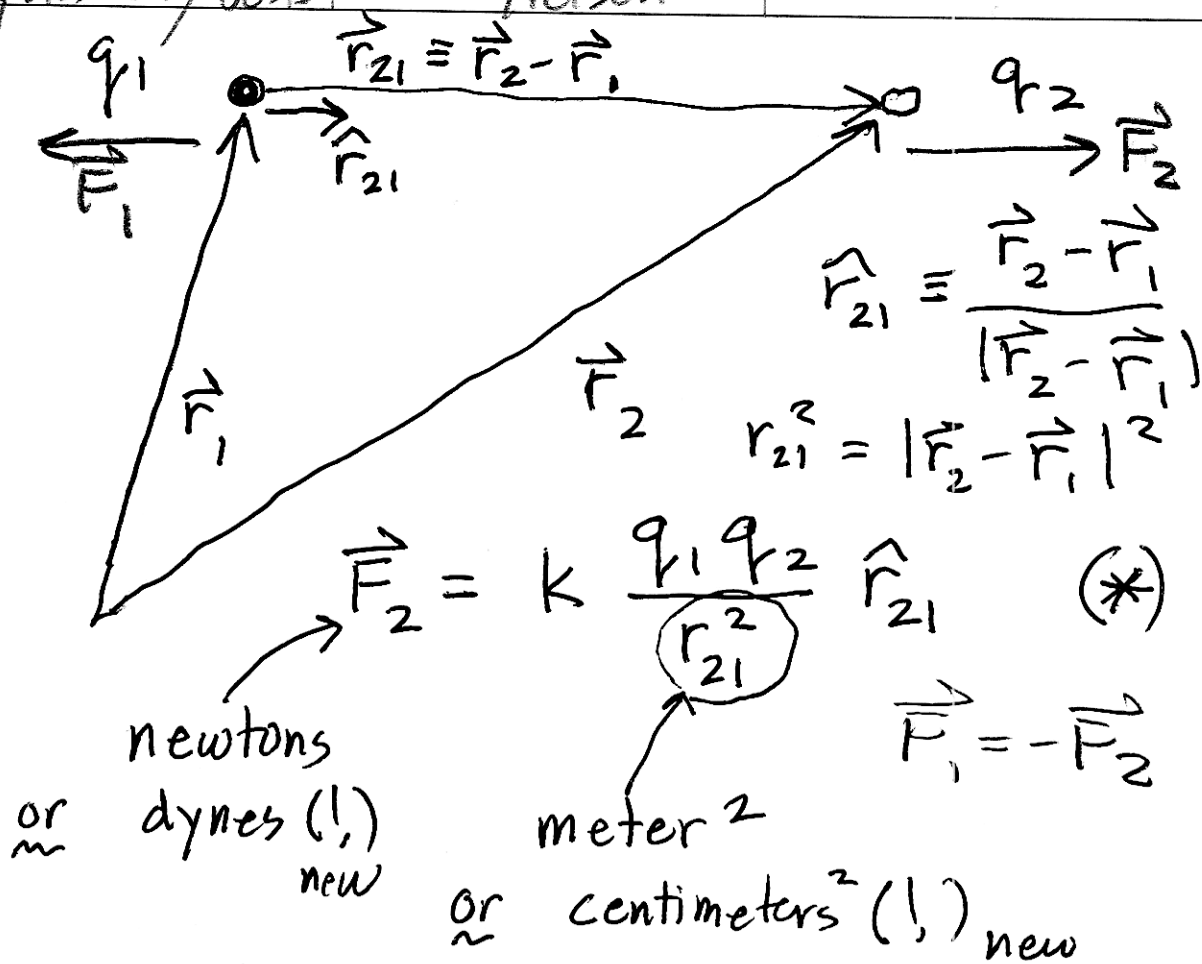 q₁
r⃗₂₁ ≡ r⃗₂ - r⃗₁
q₂
F⃗₁
r̂₂₁
F⃗₂
r̂₂₁ ≡ (r⃗₂ - r⃗₁) / |r⃗₂ - r⃗₁|
r⃗₁
r⃗₂
r₂₁² = |r⃗₂ - r⃗₁|²
F⃗₂ = k (q₁ q₂ / r₂₁²) r̂₂₁ (*)
F⃗₁ = -F⃗₂
newtons
or dynes (!,)
new
meter²
or centimeters² (!,)
new